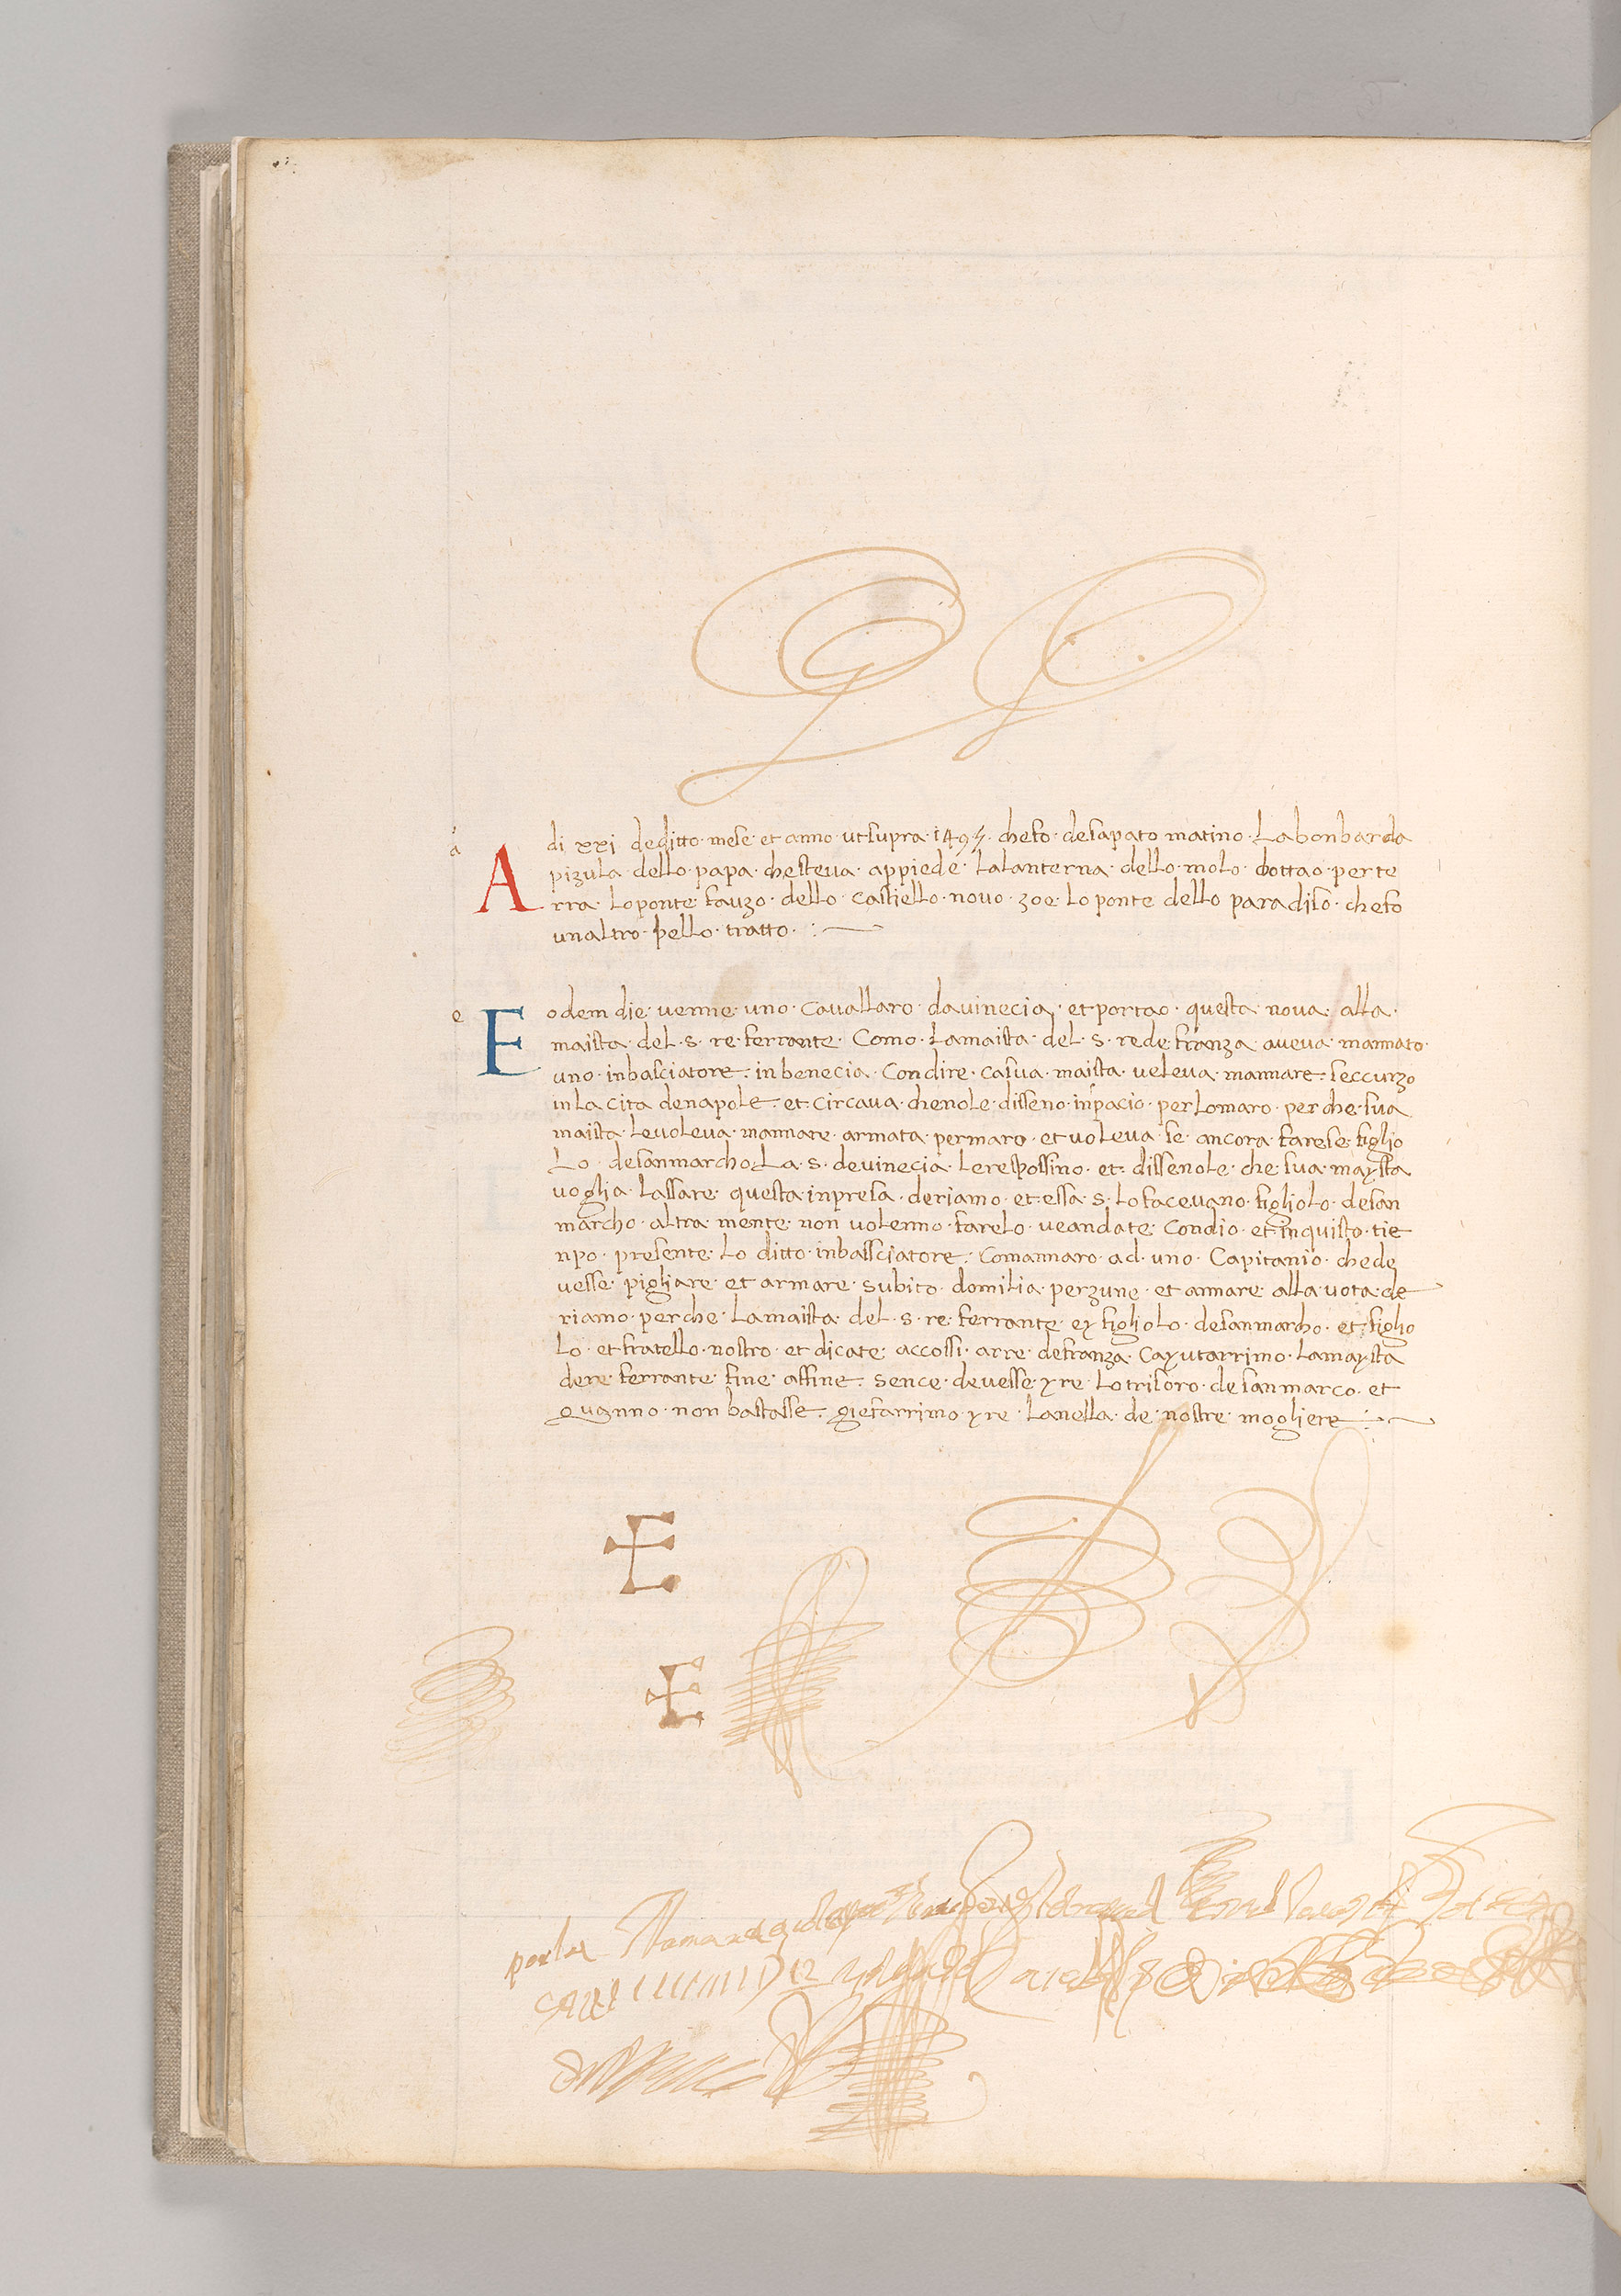 a A di xxi de ditto · mese · et anno · ut supra · 1495 · che fo · de sapato matino · La bonbarda
pizula · dello · papa · che steva · appiede · la lanterna · dello · molo · bottao · per te
rra · lo ponte fauzo · dello · castiello · novo · zoe · lo ponte dello paradiso · che fo
un altro · bello · tratto ·
e E odem die · venne · uno · cavallaro · da vinecia · et portao · questa · nova · alla ·
maista · del · s · re · ferrante · Como · La maista · del · s · re de franza · aveva · mannato ·
uno · inbasciatore · in benecia · Con dire · ca sua · maista · veleva · mannare · seccurzo
in la cita de napole · et · circava · che no le · disseno · inpacio · per lo maro · per che · sua
maista · le voleva · mannare · armata · per maro · et voleva · se · ancora · farese · figlio
Lo · de san marcho · La · s · de vinecia · le respossino · et · dissenole · che sua · maysta
voglia · lassare · questa inpresa · de riamo · et essa · s · lo facevano · figliolo · de san
marcho · altra mente · non volenno · farelo · ve andate · con dio · et in quisto · tie
npo · presente · lo ditto · inbassciatore · Comannaro · ad · uno · Capitanio · che de
vesse · pigliare · et armare · subito · domilia · perzune · et annare · alla vota · de
riamo · perche · La maista · del · s · re · ferrante · ey figliolo · de san marcho · et figlio
lo · et fratello · nostro · et dicate · accossi · arre · de franza · Cayutarrimo · La maysta
de re · ferrante · fine · affine · sence · devesse · yre · lo trisoro · de san marco · et
quanno · non bastasse · giefarrimo · yre · l anella · de · nostre · mogliere
por la